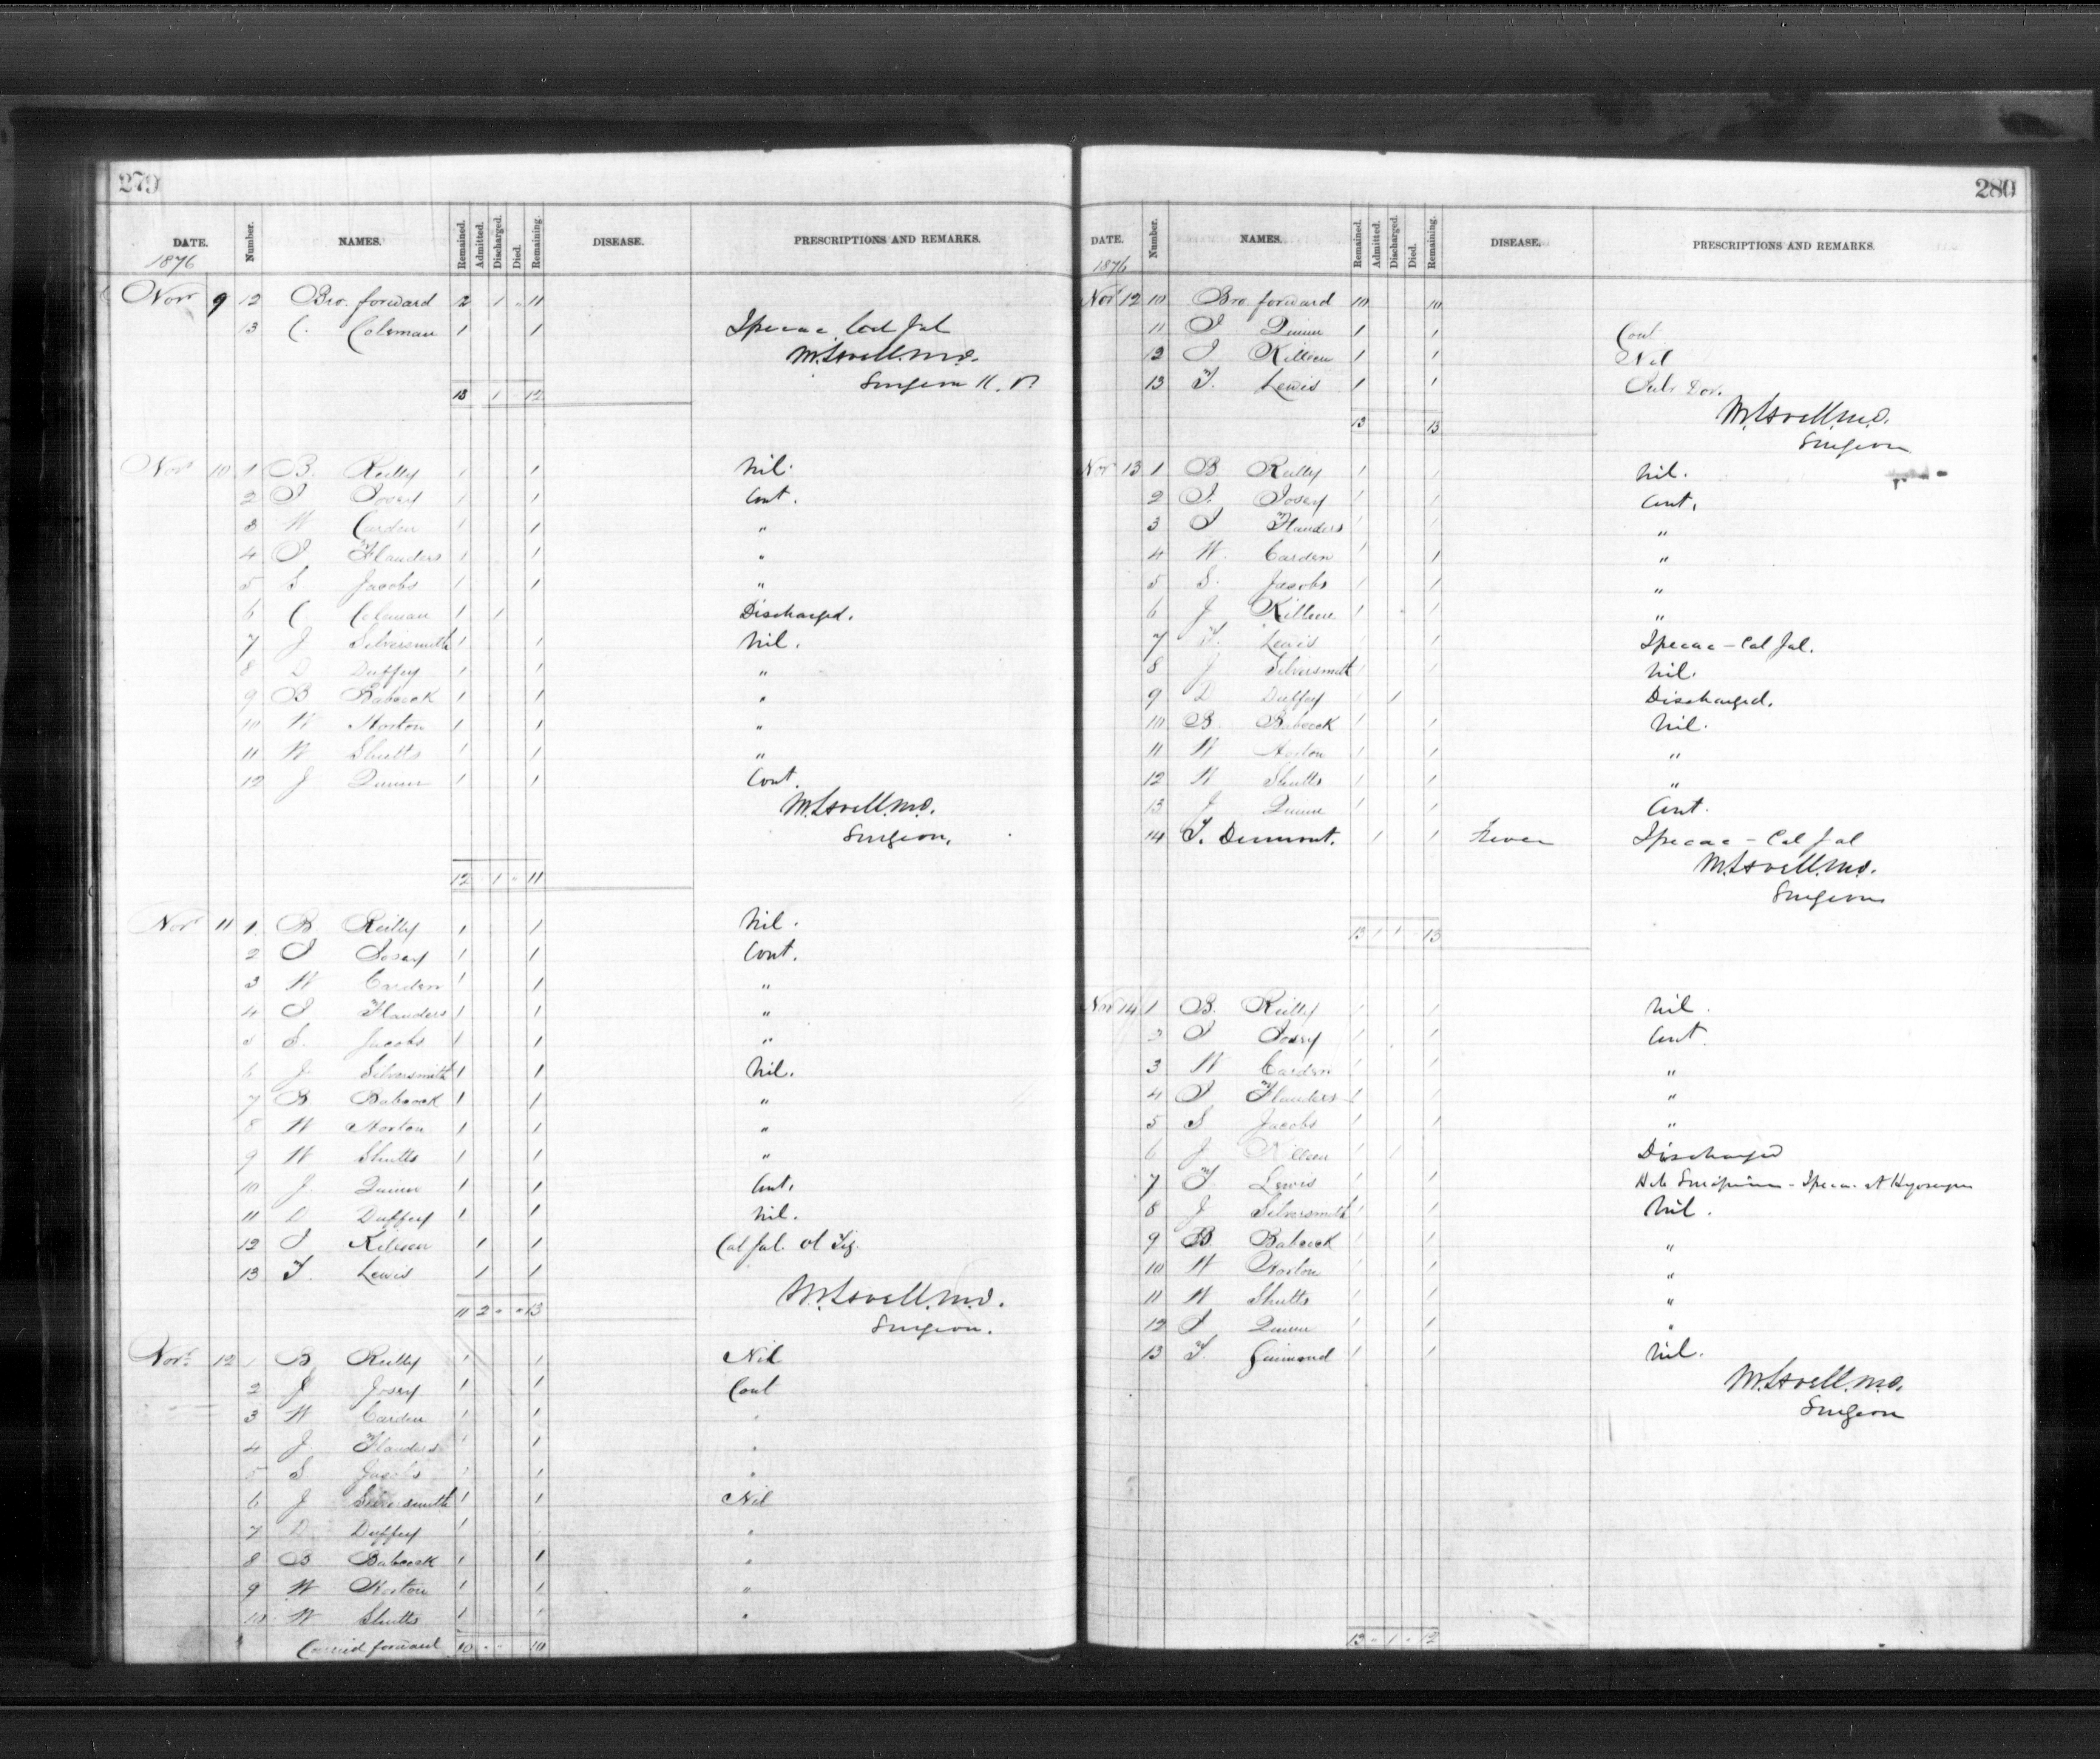 279
DATE. Number. NAMES. Remained. Admitted. Discharged. Died. Remaining. DISEASE. PRESCRIPTIONS AND REMARKS.
1876
Novr 9 12 Bro. forward 12 1 " 11
13 C. Coleman 1 1 Ipecac Cal Jal
M. Lavell. M.D.
Surgeon K. P.
13 1 12
Novr 10 1 B. Reilly 1 1 Nil.
2 J Josey 1 1 Cont.
3 W Carden 1 1 "
4 J Flanders 1 1 "
5 S Jacobs 1 1 "
6 C Coleman 1 1 Discharged.
7 J Silversmith 1 1 Nil.
8 D Duffey 1 1 "
9 B Babcock 1 1 "
10 W Norton 1 1 "
11 W Shutts 1 1 "
12 J Quinn 1 1 Cont.
M. Lavell. M.D.
Surgeon.
12 " 1 " 11
Novr 11 1 B Reilly 1 1 Nil.
2 J Josey 1 1 Cont.
3 W Carden 1 1 "
4 J Flanders 1 1 "
5 S. Jacobs 1 1 "
6 J Silversmith 1 1 Nil.
7 B Babcock 1 1 "
8 W Norton 1 1 "
9 W Shutts 1 1 "
10 J. Quinn 1 1 Cont.
11 D Duffey 1 1 Nil.
12 J Killeen 1 1 Cal Jal.
13 T. Lewis 1 1
11 2 " " 13 M. Lavell. M.D.
Surgeon.
Novr 12 1 B Reilly 1 1 Nil
2 J Josey 1 1 Cont
3 W Carden 1 1 "
4 J. Flanders 1 1 "
5 S Jacobs 1 1 "
6 J Silversmith 1 1 Nil
7 D Duffey 1 "
8 B Babcock 1 1 "
9 W Norton 1 1 "
10 W Shutts 1 1 "
Carried forward 10 " " 10
280
DATE. Number. NAMES. Remained. Admitted. Discharged. Died. Remaining. DISEASE. PRESCRIPTIONS AND REMARKS.
1876
Novr 12 10 Bro. forward 10 10
11 J Quinn 1 1 Cont
12 J Killeen 1 1 Nil
13 T. Lewis 1 1 Pulv Dov.
13 13 M. Lavell. M.D.
Surgeon
Novr 13 1 B Reilly 1 1 Nil.
2 J. Josey 1 1 Cont.
3 J Flanders 1 1 "
4 W. Carden 1 1 "
5 S. Jacobs 1 1 "
6 J Killeen 1 "
7 T. Lewis 1 1 Ipecac - Cal Jal.
8 J Silversmith 1 1 Nil.
9 D Duffey 1 1 Discharged.
10 B. Babcock 1 1 Nil.
11 W Norton 1 1 "
12 W Shutts 1 1 "
13 J Quinn 1 1 Cont.
14 T. Dumont. 1 1 Fever Ipecac - Cal Jal
M. Lavell. M.D.
Surgeon
13 1 1 " 13
Novr 14 1 B. Reilly 1 1 Nil.
2 J Josey 1 1 Cont.
3 W Carden 1 1 "
4 J Flanders 1 1 "
5 S Jacobs 1 1 "
6 J Killeen 1 1 Discharged
7 T. Lewis 1 1
8 J Silversmith 1 1 Nil.
9 B. Babcock 1 1 "
10 W Norton 1 1 "
11 W Shutts 1 1 "
12 J Quinn 1 1 "
13 T. Guimond 1 1 Nil.
M. Lavell. M.D.
Surgeon
13 " 1 " 12